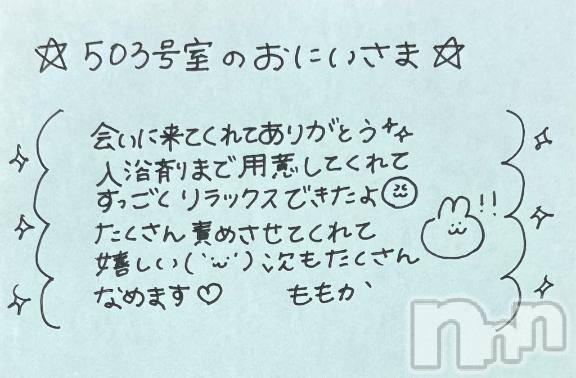 ☆503号室のおにいさま☆
会いに来てくれてありがとう
入浴剤まで用意してくれて
すっごくリラックスできたよ
たくさん責めさせてくれて
嬉しい(˙꒳˙) 次もたくさん
なめます♡ ももか
!!
nmn